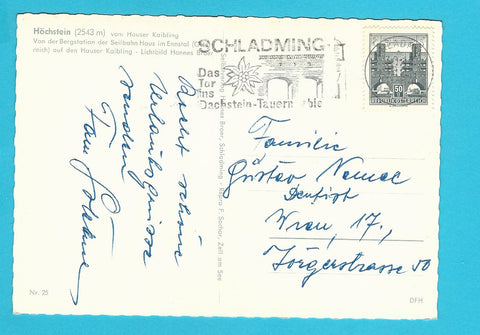 Höchstein (2543 m) vom Hauser Kaibling
Von der Bergstation der Seilbahn Haus im Ennstal
reich) auf den Hauser Kaibling - Lichtbild Hannes
SCHLADMING
Das
Tor
ins
Dachstein-Tauern
50
REPUBLIK ÖSTERREICH
Recht schöne
Urlaubsgrüsse
senden
Fam.
Familie
Gustav Nemec
Dentist
Wien, 17.,
Jörgerstrasse 50
Schladming - Foto F. Zell am See
Nr. 25
DFH